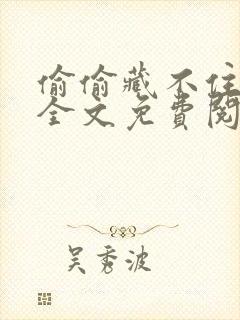 偷偷藏不住
全文免費閱
吳秀波